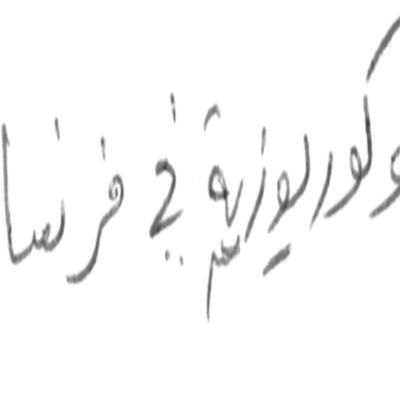 وكوربوزية في فرنسا